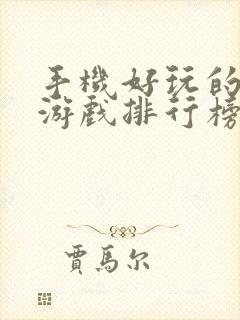 手機好玩的
游戲排行榜
賈馬尔